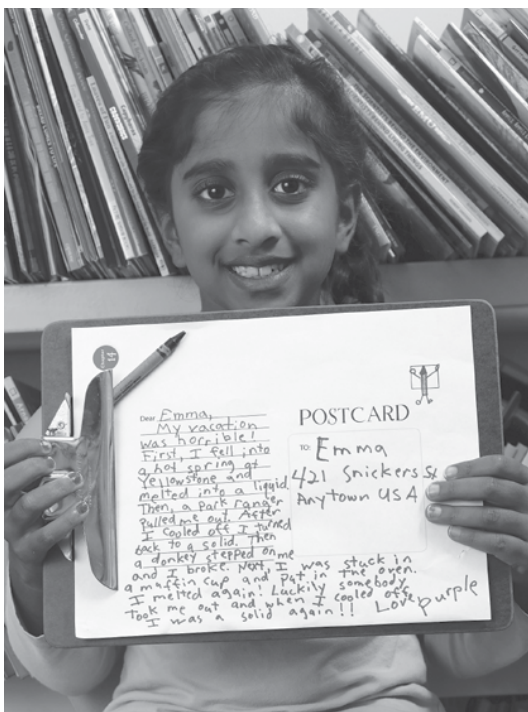 14
Dear Emma,
My vacation
was horrible!
First, I fell into
a hot spring at
Yellowstone and
melted into a liquid.
Then, a park ranger
pulled me out. After
I cooled off I turned
back to a solid. Then
a donkey stepped on me
and I broke. Next, I was stuck in
a muffin cup and put in the oven.
I melted again! Luckily somebody
took me out and when I cooled off
I was a solid again!!
Love, purple
POSTCARD
TO: Emma
421 Snickers St
Anytown USA